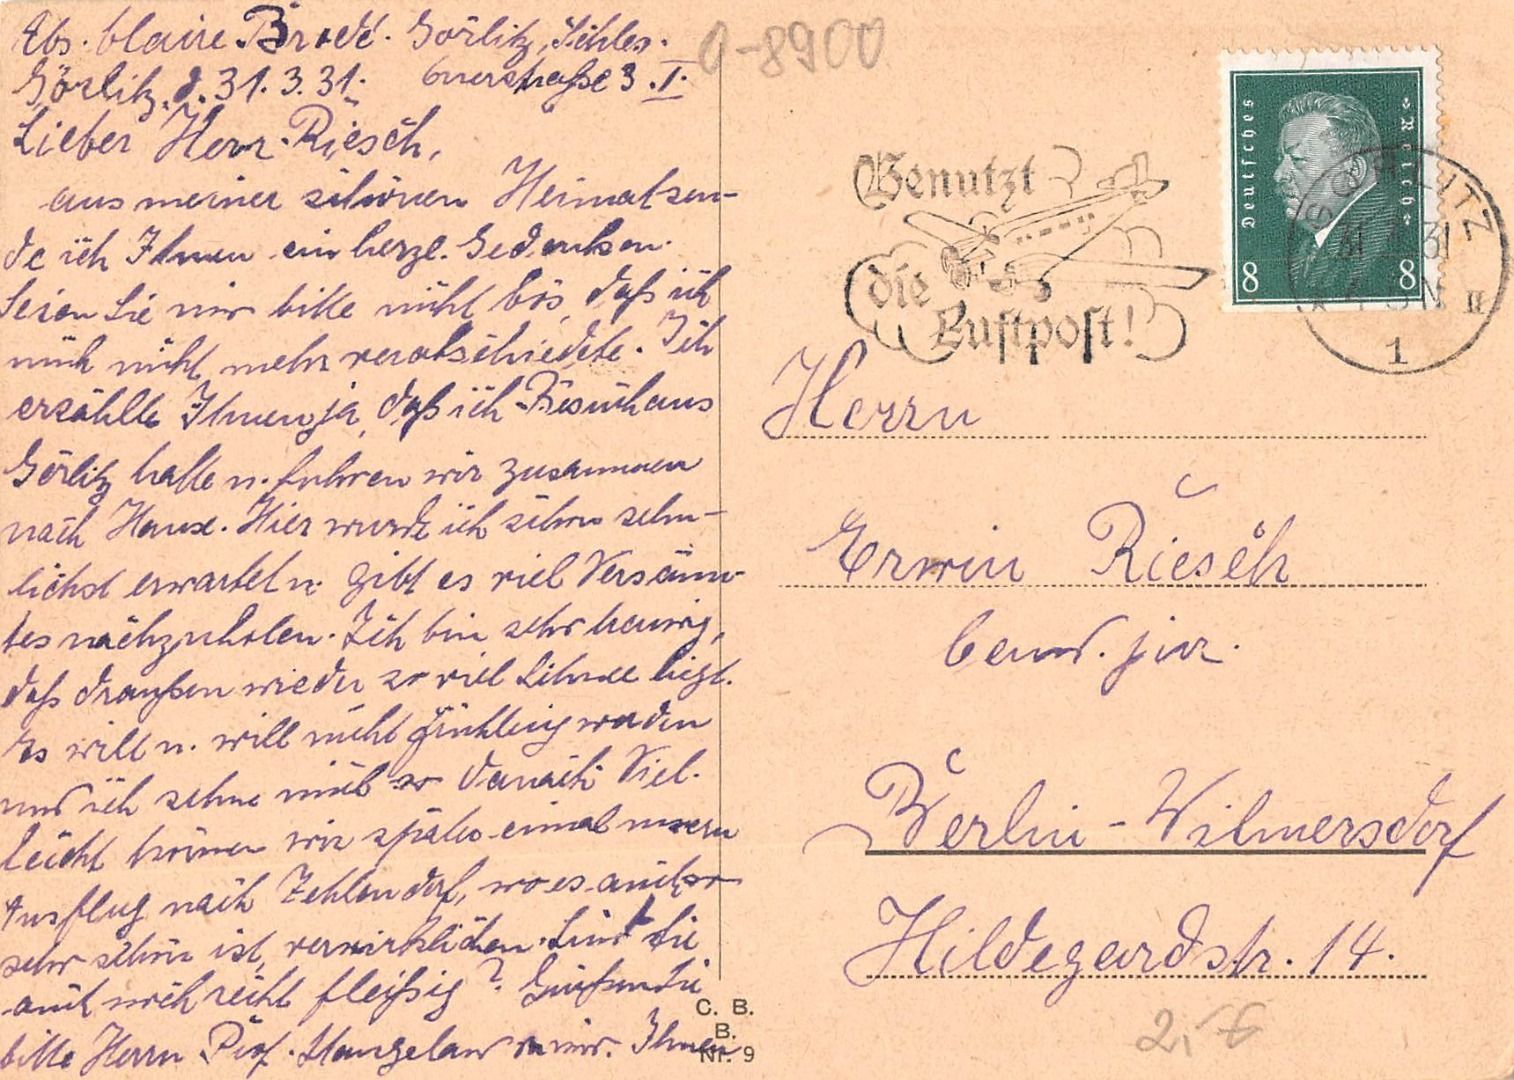 Abs. Claire Brodt. Görlitz, Schles.
Görlitz, d. 31. 3. 31. straße 3. I.
Lieber Herr Riesch,
aus meiner schönen Heimat sen-
de ich Ihnen ein herzl. Gedenken.
Seien Sie mir bitte nicht bös, daß ich
mich nicht mehr verabschiedete. Ich
erzählte Ihnen ja, daß ich Besuch aus
Görlitz hatte u. fuhren wir zusammen
nach Hause. Hier wurde ich schon sehn-
lichst erwartet u. gibt es viel Versäum-
tes nachzuholen. Ich bin sehr traurig,
daß draußen wieder so viel Schnee liegt.
Es will u. will nicht Frühling werden
und ich sehne mich so danach. Viel-
leicht können wir später einmal unsern
Ausflug nach Zehlendorf, wo es auch so
sehr schön ist, verwirklichen. Sind Sie
auch noch recht fleißig? Grüßen Sie
bitte Herrn Prof. u. mir. Ihnen
C. B.
B.
Nr. 9
0-8900
Benutzt
die
Luftpost!
Deutsches
Reich
8 8
GÖRLITZ
31 31
II
1
Herrn
Erwin Riesch
cand. jur.
Berlin-Wilmersdorf
Hildegardstr. 14.
2,-